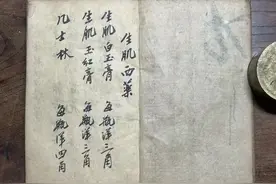 生肌西藥
生肌白玉膏 每瓶洋三角
生肌玉紅膏 每瓶洋三角
凡士林 每瓶洋四角